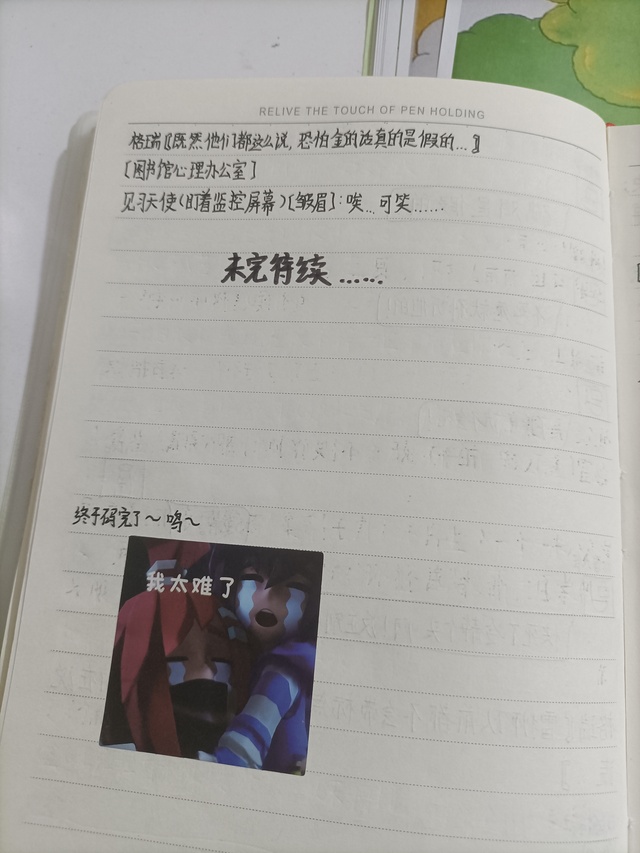 RELIVE THE TOUCH OF PEN HOLDING
格瑞〖既然他们都这么说,恐怕金的话真的是假的…〗
[图书馆心理办公室]
见习天使(盯着监控屏幕)[皱眉]:唉…可笑……
未完待续……
终于码完了~呜~
我太难了